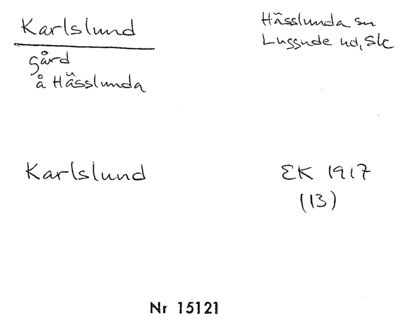 Karlslund
gård
å Hässlunda
Hässlunda sn
Luggude hd, Skc
Karlslund
EK 1917
(13)
Nr 15121